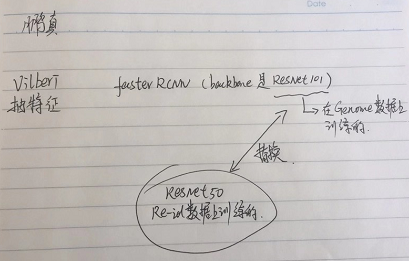 Date
Vilbert
抽特征
faster RCNN (backbone是ResNet101)
在Genome数据上
训练的.
替换
ResNet50
Re-id数据上训练的.